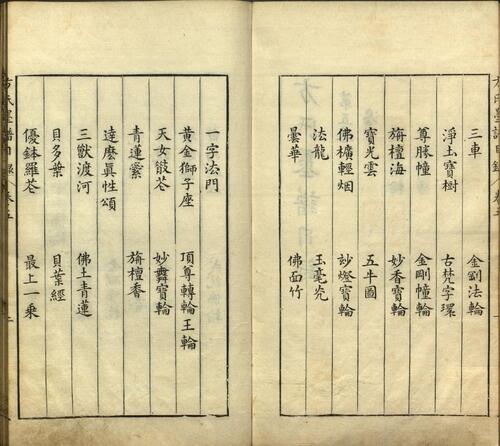 三車 金剛法輪
淨土寶樹 古梵字環
尊勝幢 金剛幢輪
旃檀海 妙香寶輪
寶光雲 五牛圖
佛櫎輕烟 玅燈寶輪
法龍 玉毫光
曇華 佛面竹
一字法門
黃金獅子座 頂尊轉輪王輪
天女散花 妙舞寶輪
青蓮 旃檀香
達麽眞性頌
三獸渡河 佛土青蓮
貝多葉 貝葉經
優鉢羅花 最上一乗
方氏墨譜目錄 卷五